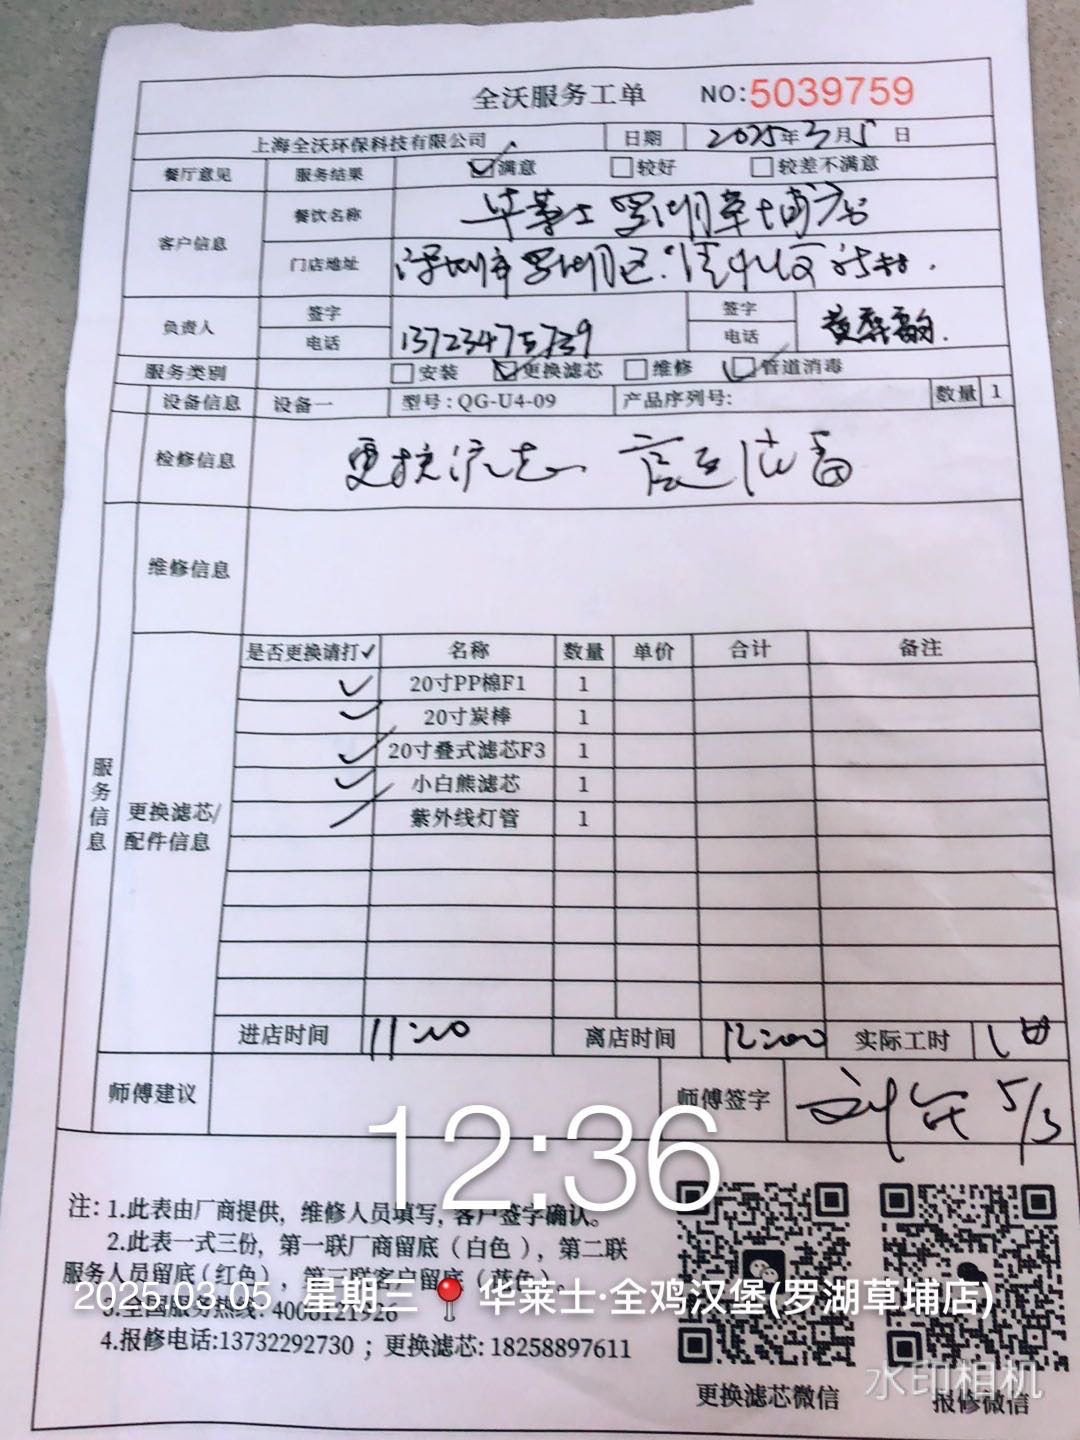 全沃服务工单 NO:5039759
上海全沃环保科技有限公司 日期 2025年3月5日
餐厅意见 服务结果 ☑满意 □较好 □较差不满意
客户信息 餐饮名称 华莱士罗湖草埔店
门店地址 深圳市罗湖区清水河新村.
负责人 签字 签字
电话 13723475739 电话
服务类别 □安装 ☑更换滤芯 □维修 ☑管道消毒
设备信息 设备一 型号:QG-U4-09 产品序列号: 数量 1
检修信息 更换滤芯 管道消毒
维修信息
服务信息
更换滤芯/配件信息
是否更换请打✓ 名称 数量 单价 合计 备注
✓ 20寸PP棉F1 1
✓ 20寸炭棒 1
✓ 20寸叠式滤芯F3 1
✓ 小白熊滤芯 1
✓ 紫外线灯管 1
进店时间 11:20 离店时间 12:00 实际工时
师傅建议 师傅签字 5/3
12:36
注: 1.此表由厂商提供, 维修人员填写, 客户签字确认。
2.此表一式三份, 第一联厂商留底(白色), 第二联
服务人员留底(红色), 第三联客户留底(黄色).
2025.03.05 星期三 华莱士·全鸡汉堡(罗湖草埔店)
3.全国服务热线: 4008121926
4.报修电话:13732292730 ; 更换滤芯: 18258897611
更换滤芯微信 报修微信
水印相机